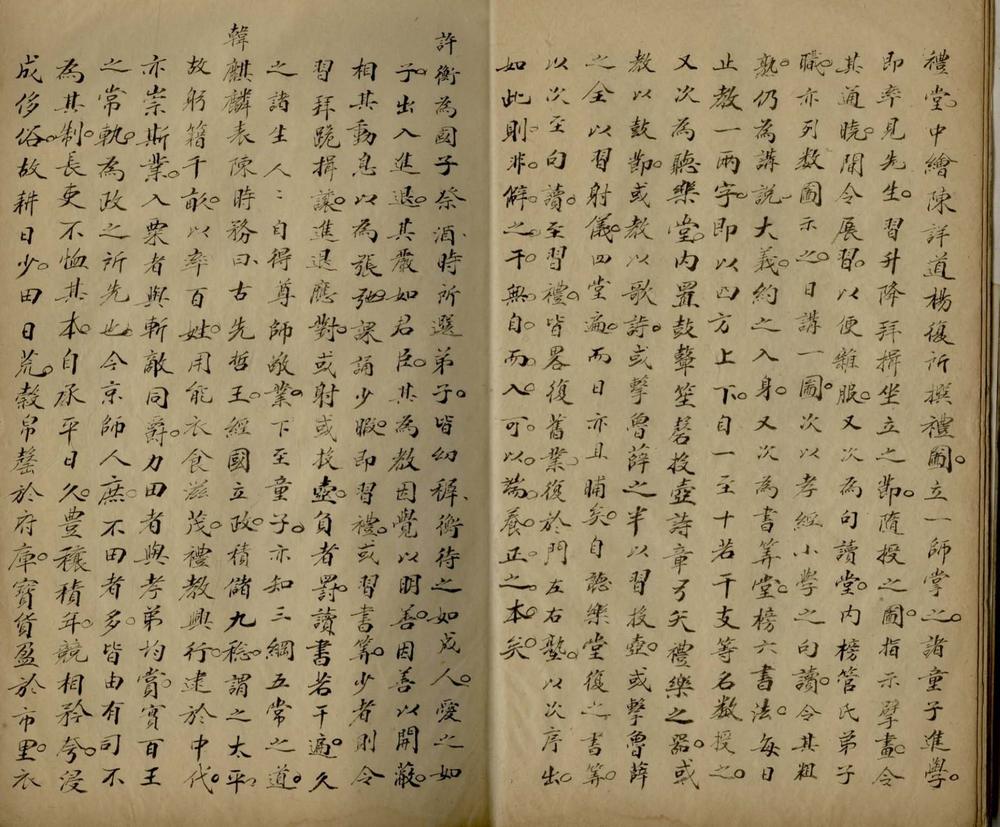 禮堂中繪陳詳道楊復所撰禮圖。立一師掌之。諸童子進學。
即率見先生。習升降拜揖坐立之節。隨授之圖。指示擘畫。令
其通曉。閒令展習。以便雜服。又次為句讀堂。內榜管氏弟子
職。亦列數圖示之。日講一圖。次以孝經小學之句讀。令其粗
熟。仍為講說大義。約之入身。又次為書筭堂。榜六書法。每日
止教一兩字。即以四方上下。自一至十若干支等名數授之。
又次為聽樂堂。內置鼓鼙笙磬投壺詩章弓矢禮樂之器。或
教以鼓節。或教以歌詩。或擊魯薛之半以習投壺。或擊魯薛
之全以習射儀。四堂遍。而日亦且晡矣。自聽樂堂復之書筭。
以次至句讀。至習禮。皆畧復舊業。復於門左右塾。以次序出。
如此則非僻之干無自而入。可以端養正之本矣。
許衡為國子祭酒、時所選弟子。皆幼穉、衡待之如成人。愛之如
子。出入進退。其嚴如君臣。其為教因覺以明善。因善以開蔽。
相其動息以為張弛。課誦少暇。即習禮。或習書筭。少者則令
習拜跪揖讓。進退應對。或射或投壺。負者罰讀書若干遍。久
之諸生人〻自得尊師敬業。下至童子。亦知三綱五常之道。
韓麒麟表陳時務曰、古先哲王。經國立政。積儲九稔。謂之太平。
故躬籍千畝。以率百姓。用能衣食滋茂。禮教興行。逮於中代。
亦崇斯業。入粟者與斬敵同爵。力田者與孝弟均賞。實百王
之常軌。為政之所先也。今京師人庶。不田者多。皆由有司不
為其制。長吏不恤其本。自承平日久。豊穰積年。競相矜夸。浸
成侈俗。故耕日少。田日荒。穀帛罄於府庫。寶貨盈於市里。衣